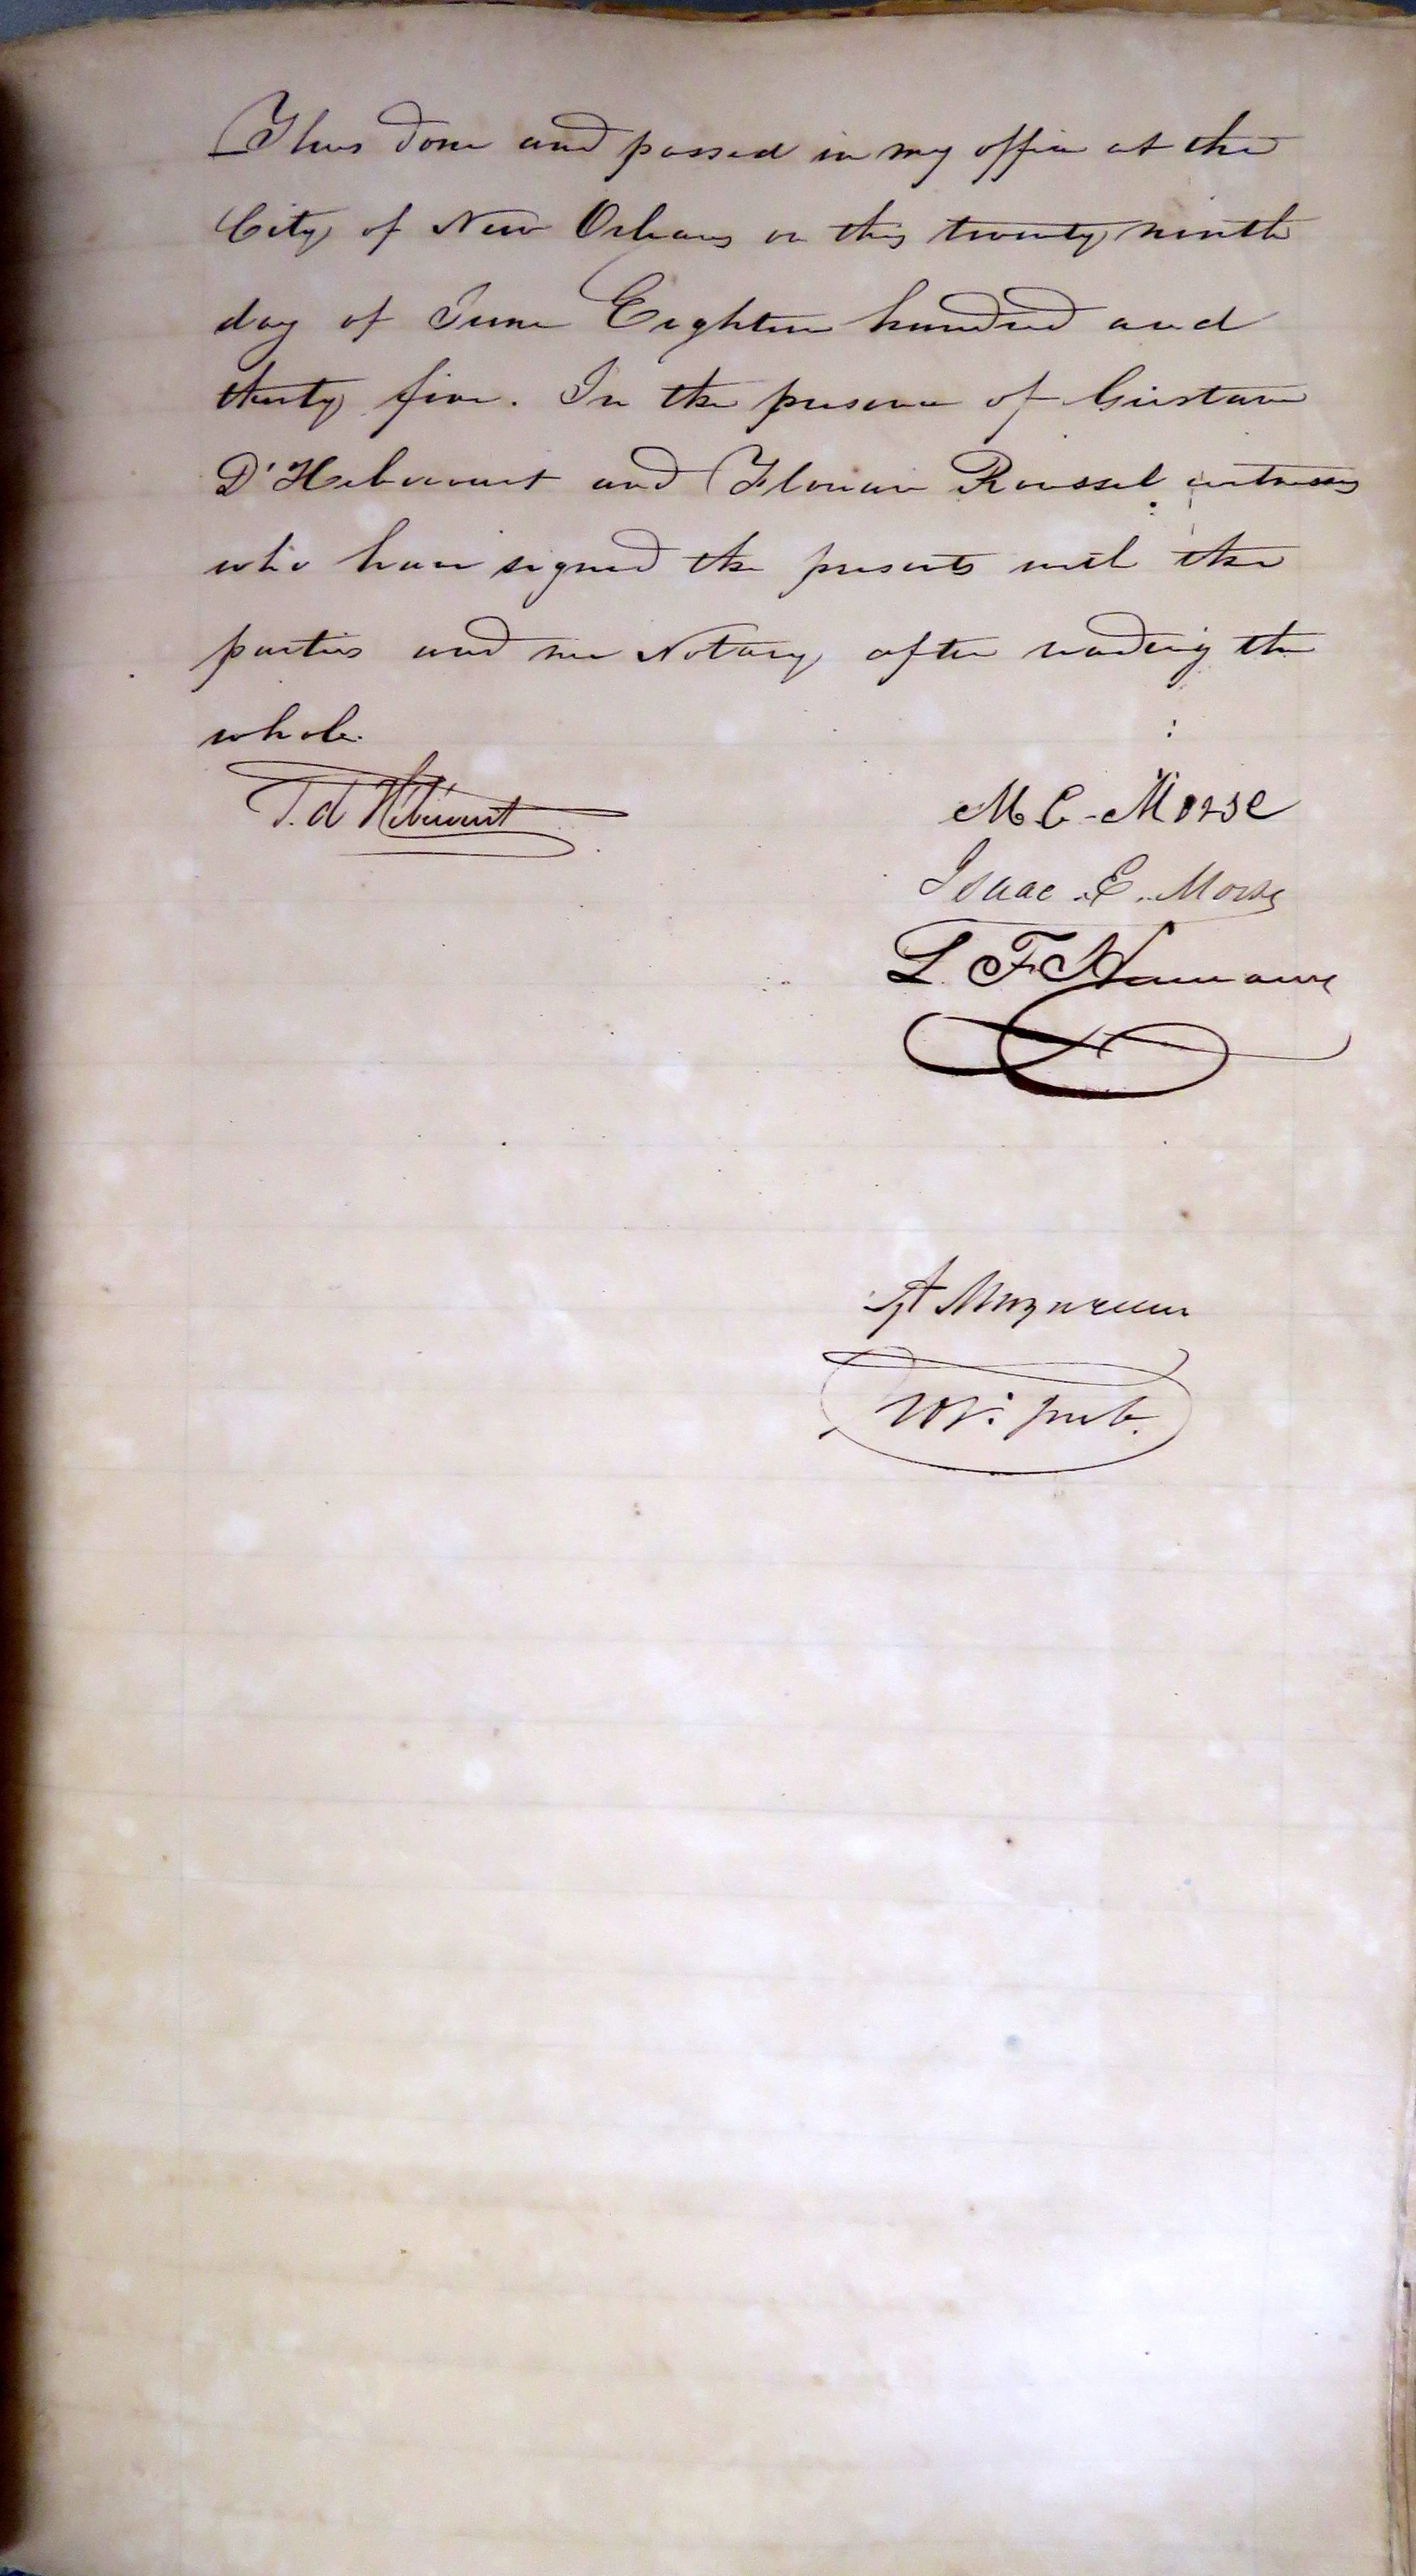 Thus done and passed in my office at the
City of New Orleans on this twenty ninth
day of June Eighteen hundred and
thirty five. In the presence of Gustave
D'Hebecourt and Florian Roussel witnesses
who have signed the presents with the
parties and me Notary after reading the
whole.
M C - Morse
Isaac . E. Morse
L. F.
A Mazureau
Not. pub.